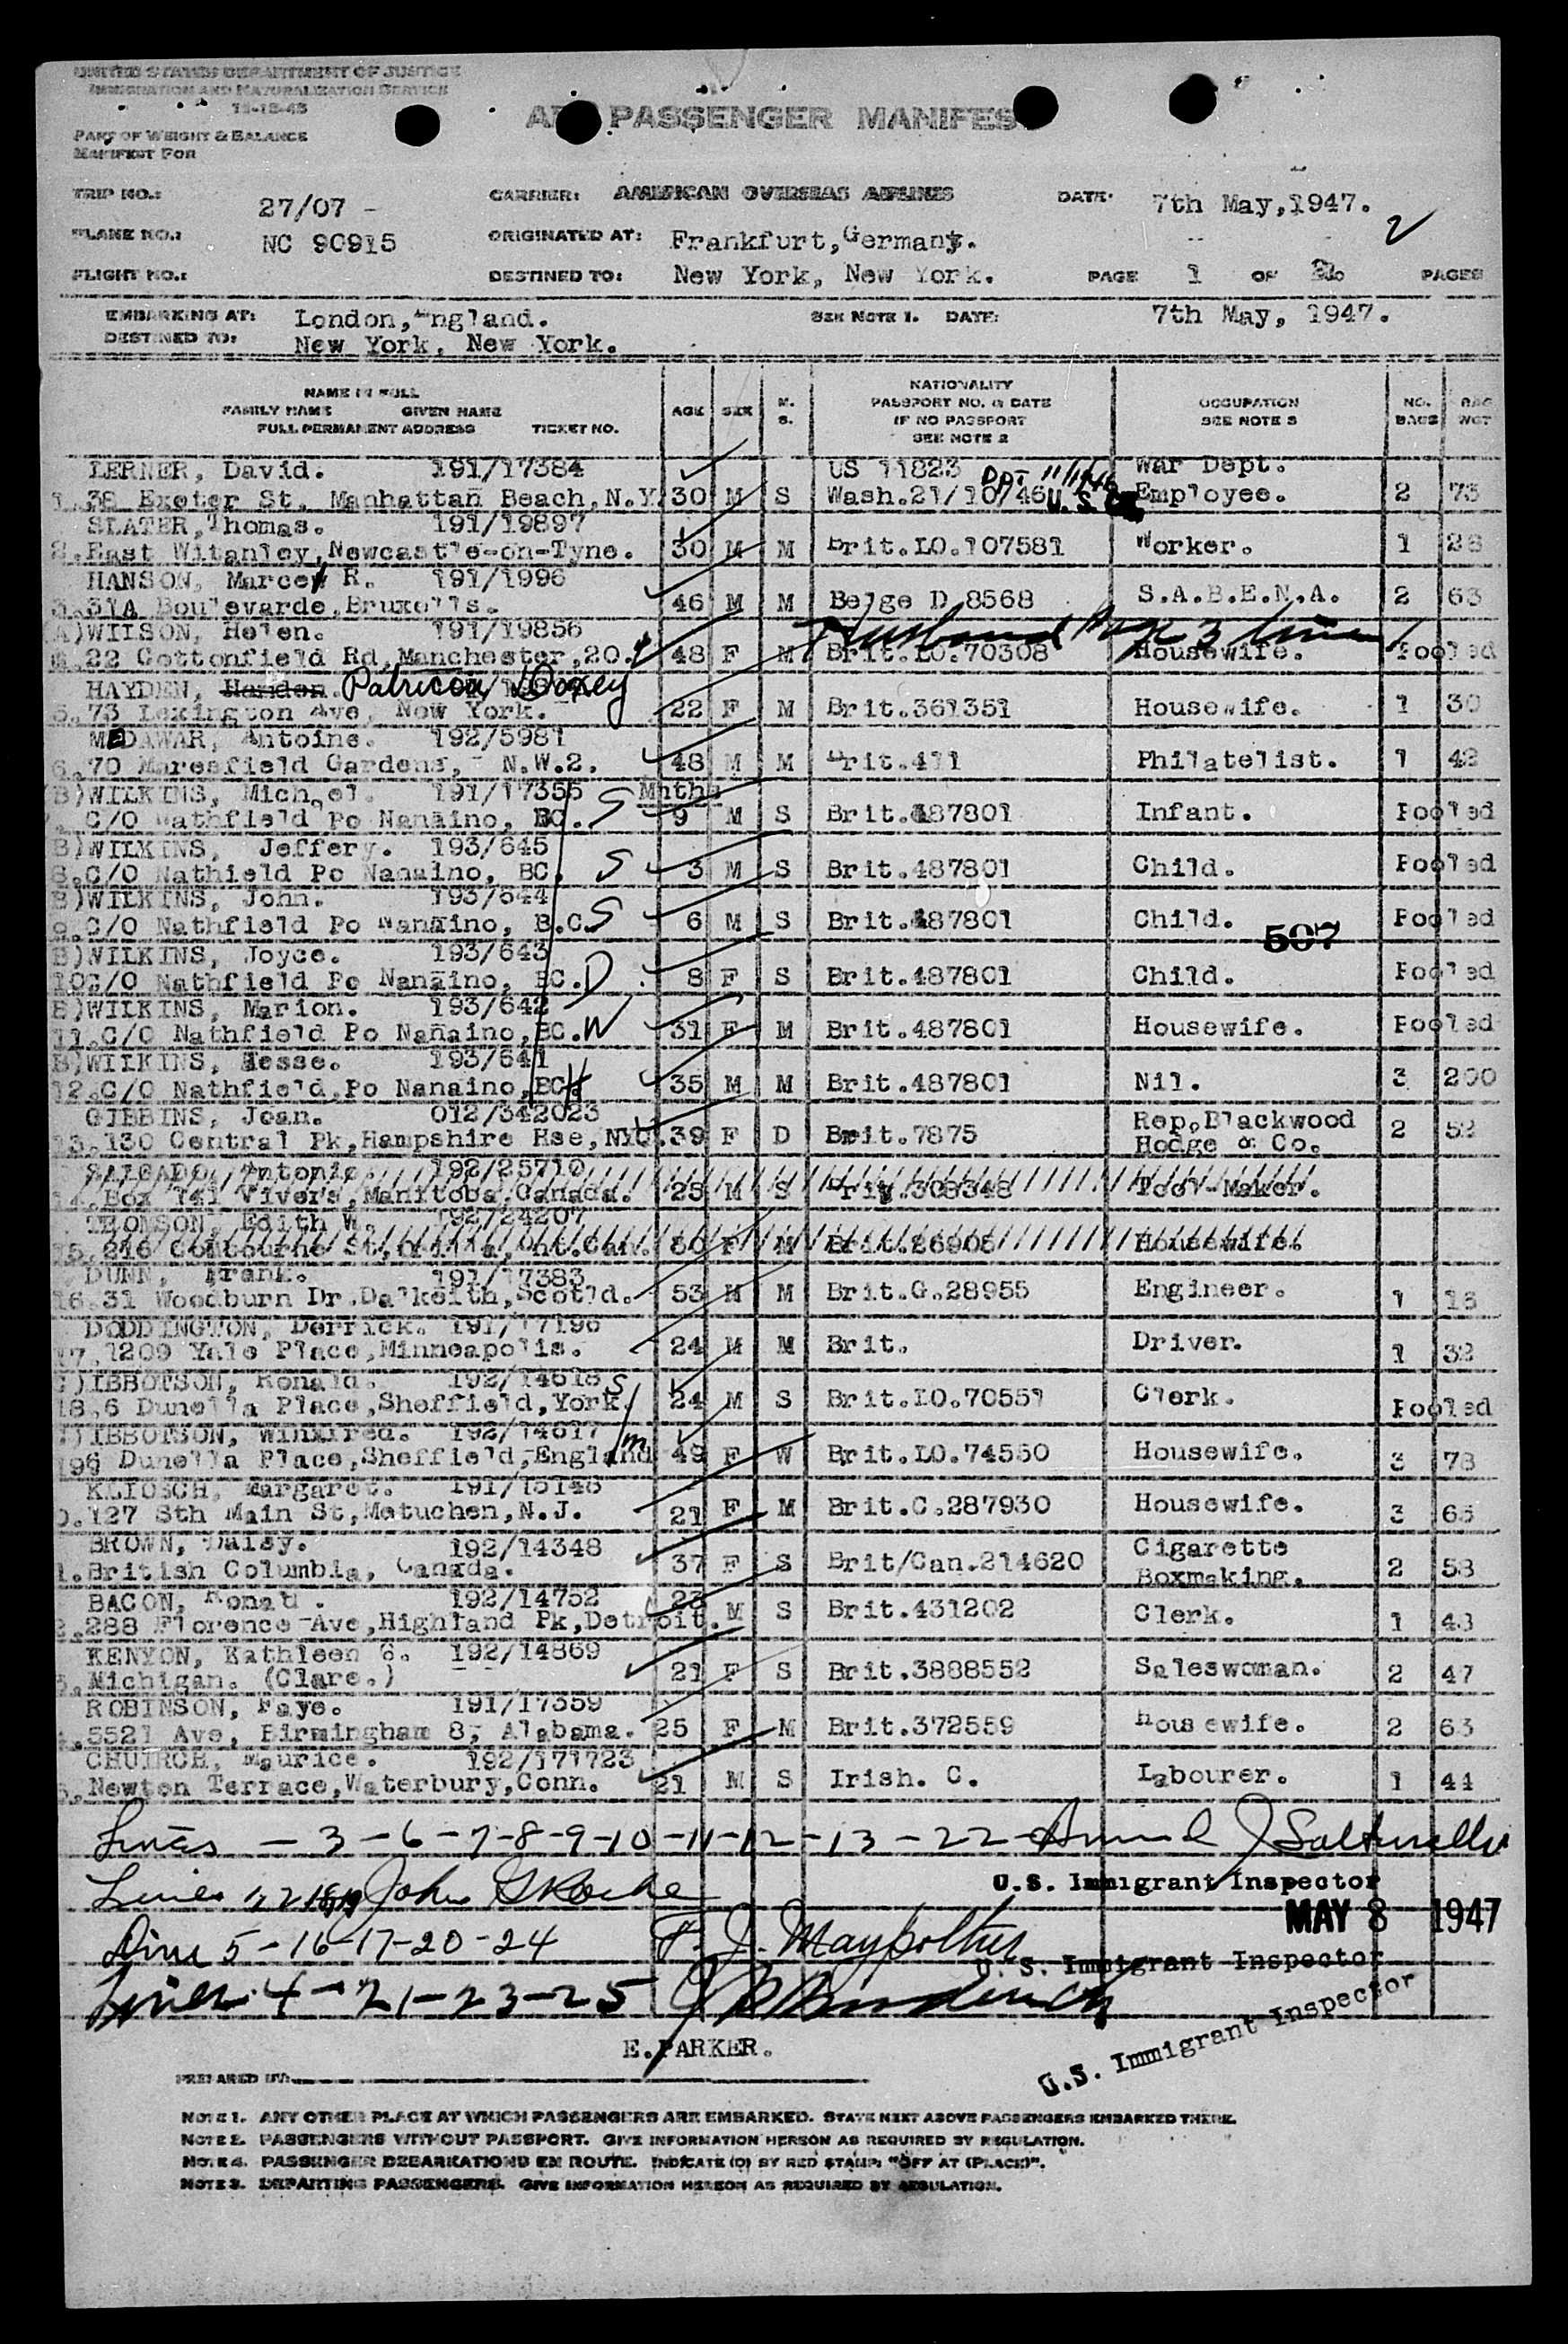 UNITED STATES DEPARTMENT OF JUSTICE
IMMIGRATION AND NATURALIZATION SERVICE
11-18-43
PART OF WEIGHT & BALANCE
MANIFEST FOR
PASSENGER MANIFES
TRIP NO.: 27/07 - CARRIER: AMERICAN OVERSEAS AIRLINES DATE: 7th May, 1947.
PLANE NO.: NC 90915 ORIGINATED AT: Frankfurt, Germany. 2
FLIGHT NO.: DESTINED TO: New York, New York. PAGE 1 OF PAGES
EMBARKING AT: London, England. SEE NOTE 1. DATE: 7th May, 1947.
DESTINED TO: New York, New York.
NAME IN FULL
FAMILY NAME GIVEN NAME
FULL PERMANENT ADDRESS TICKET NO.
AGE SEX M. S.
NATIONALITY
PASSPORT NO. & DATE
IF NO PASSPORT
SEE NOTE 2
OCCUPATION
SEE NOTE 3
NO. BAGS BAG WGT
LERNER, David. 191/17384 US 11823 War Dept.
1. 38 Exeter St, Manhattan Beach, N.Y. 30 M S Wash.21/10/46 U.S. Employee. 2 73
SLATER, Thomas. 191/19897
2. East Witanley, Newcastle-on-Tyne. 30 M M Brit.LO.107581 Worker. 1 28
HANSON, Marcel R. 191/1996
3. 31A Boulevarde, Bruxells. 46 M M Belge D 8568 S.A.B.E.N.A. 2 63
A)WILSON, Helen. 191/19856 Husband Page 3 line 1
4. 22 Cottonfield Rd, Manchester, 20. 48 F M Brit.LO.70308 Housewife. Pooled
HAYDEN, Patricia Doxey
5. 73 Lexington Ave, New York. 22 F M Brit.361351 Housewife. 1 30
MEDAWAR, Antoine. 192/5981
6. 70 Maresfield Gardens, N.W.2. 48 M M Brit.411 Philatelist. 1 42
B)WILKINS, Michael. 191/17355 Mnths
C/O Nathfield Po Nanaino, BC. S 9 M S Brit.487801 Infant. Pooled
B)WILKINS, Jeffery. 193/645
8. C/O Nathield Po Nanaino, BC. S 3 M S Brit.487801 Child. Pooled
B)WILKINS, John. 193/644
9. C/O Nathfield Po Nanaino, B.C. S 6 M S Brit.487801 Child. 507 Pooled
B)WILKINS, Joyce. 193/643
10C/O Nathfield Po Nanaino, BC. D 8 F S Brit.487801 Child. Pooled
B)WILKINS, Marion. 193/642
11. C/O Nathfield Po Nanaino, BC. W 31 F M Brit.487801 Housewife. Pooled
B)WILKINS, Jesse. 193/641
12. C/O Nathfield, Po Nanaino, BC. H 35 M M Brit.487801 Nil. 3 200
GIBBINS, Joan. 012/342023 Rep. Blackwood
13. 130 Central Pk, Hampshire Hse, NYC. 39 F D Brit.7875 Hodge & Co. 2 52
SALGADO, Antonio. 192/25710
14. Box 741 Vivers, Manitoba, Canada. 25 M S 308348 Tool-Maker.
THOMSON, Edith W. 192/24207
15. 216 St, Ont. Can. 60 F M Brit.26908 Housewife.
DUNN, Frank. 191/17383
16. 31 Woodburn Dr. Dalkeith, Scotld. 53 M M Brit.G.28955 Engineer. 1 16
DODDINGTON, Derrick. 191/17196
17. 1209 Yale Place, Minneapolis. 24 M M Brit. Driver. 1 32
IBBOTSON, Ronald. 192/14618 S
18. 6 Dunella Place, Sheffield, York. 24 M S Brit.LO.70551 Clerk. Pooled
IBBOTSON, Winifred. 192/14617 m
196 Dunella Place, Sheffield, England 49 F W Brit.LO.74550 Housewife. 3 78
KLIOSCH, Margaret. 191/15146
0. 127 Sth Main St, Metuchen, N.J. 21 F M Brit.C.287930 Housewife. 3 65
BROWN, Daisy. 192/14348 Cigarette
1. British Columbia, Canada. 37 F S Brit/Can.214620 Boxmaking. 2 58
BACON, Ronald. 192/14752
2. 288 Florence Ave, Highland Pk, Detroit. 23 M S Brit.431202 Clerk. 1 43
KENYON, Kathleen 192/14869
3. Michigan. (Clare.) 21 F S Brit.3888552 Saleswoman. 2 47
ROBINSON, Faye. 191/17359
5521 Ave, Birmingham 8, Alabama. 25 F M Brit.372559 Housewife. 2 63
CHUIRCH, Maurice. 192/171723
Newton Terrace, Waterbury, Conn. 21 M S Irish. C. Labourer. 1 44
Lines - 3-6-7-8-9-10-11-12-13-22
Lines 1, 2 18, 19 John
U.S. Immigrant Inspector
MAY 8 1947
Line 5-16-17-20-24
U.S. Immigrant Inspector
Lines 4-21-23-25
U.S. Immigrant Inspector
E. PARKER.
PREPARED BY:
NOTE 1. ANY OTHER PLACE AT WHICH PASSENGERS ARE EMBARKED. STATE NEXT ABOVE PASSENGERS EMBARKED THERE.
NOTE 2. PASSENGERS WITHOUT PASSPORT. GIVE INFORMATION HEREON AS REQUIRED BY REGULATION.
NOTE 4. PASSENGER DEBARKATIONS EN ROUTE. INDICATE (D) BY RED STAMP: "OFF AT (PLACE)".
NOTE 3. DEPARTING PASSENGERS. GIVE INFORMATION HEREON AS REQUIRED BY REGULATION.